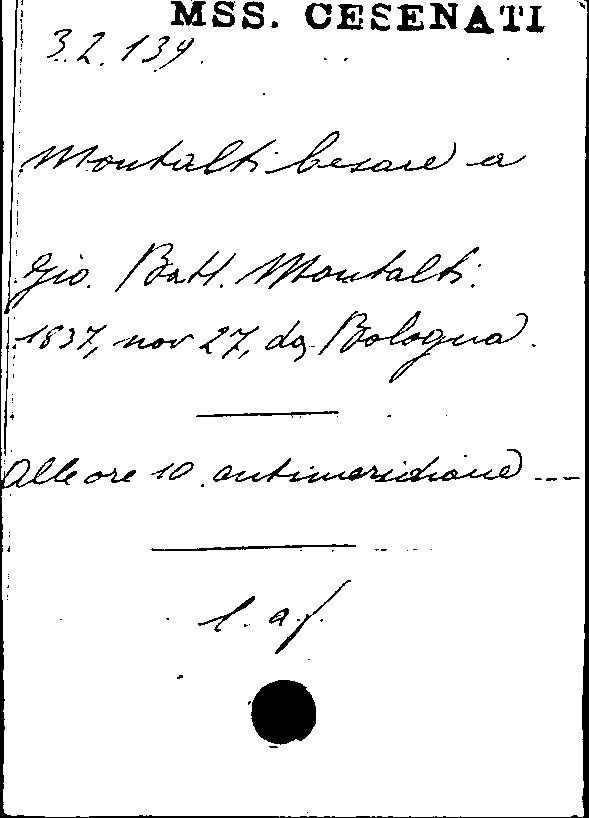 MSS. CESENATI
3.2.139.
Montalti Cesare a
Gio. Batt. Montalti.
1837, nov 27, da Bologna.
Alle ore 10 antimeridiane ---
l. a f.